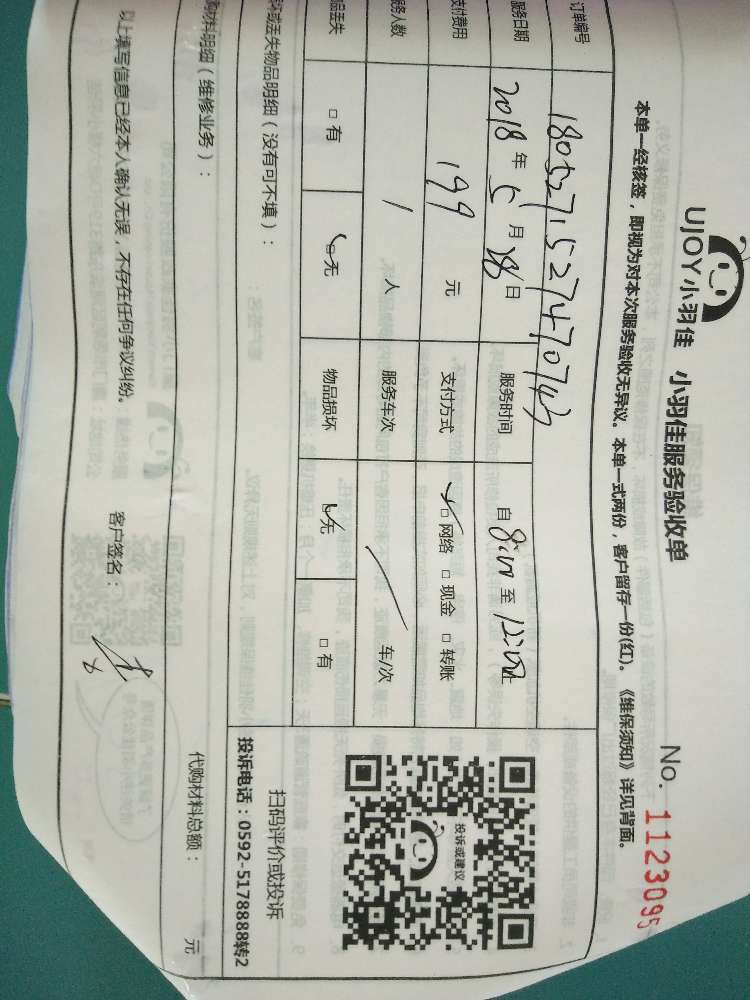 UJOY小羽佳 小羽佳服务验收单
No. 1123095
本单一经核签，即视为对本次服务验收无异议。本单一式两份，客户留存一份(红)。《维保须知》详见背面。
订单编号
服务日期 2018年5月28日 服务时间 自8:00至12:00止
支付费用 199元 支付方式 网络 现金 转账
服务人数 1人 服务车次 车/次
有 无 物品损坏 无 有
丢失物品明细（没有可不填）：
材料明细（维修业务）：
代购材料总额： 元
以上填写信息已经本人确认无误，不存在任何争议纠纷。 客户签名：
投诉或建议
扫码评价或投诉
投诉电话：0592-5178888转2